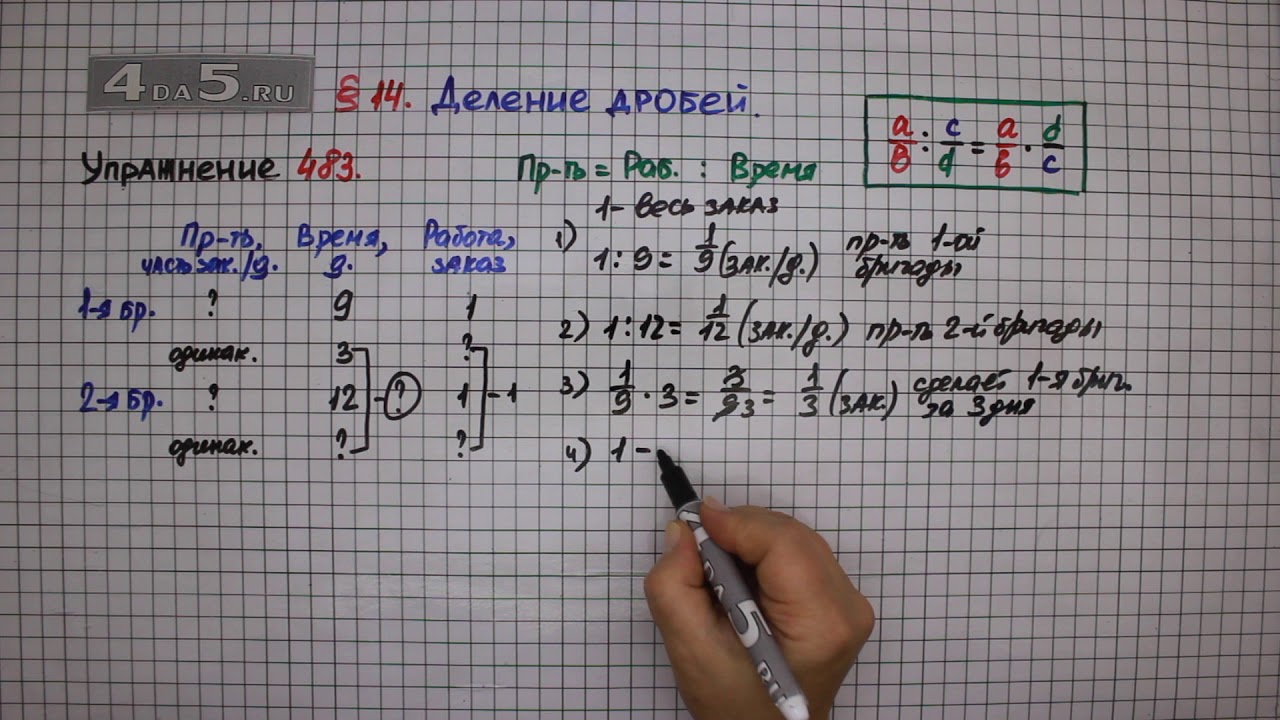 4DA5.RU
§ 14. Деление дробей.
a/b : c/d = a/b · d/c
Упражнение 483.
Пр-ть = Раб. : Время
1- весь заказ
Пр-ть, Время, Работа,
часть зак./д. д. заказ
1-я бр. ? 9 1
одинак. 3 ?
2-я бр. ? 12 ? 1 - 1
одинак. ? ?
1) 1 : 9 = 1/9 (зак./д.) пр-ть 1-ой
бригады
2) 1 : 12 = 1/12 (зак./д.) пр-ть 2-й бригады
3) 1/9 · 3 = 3/9 3 = 1/3 (зак.) сделает 1-я бриг.
за 3 дня
4) 1 -